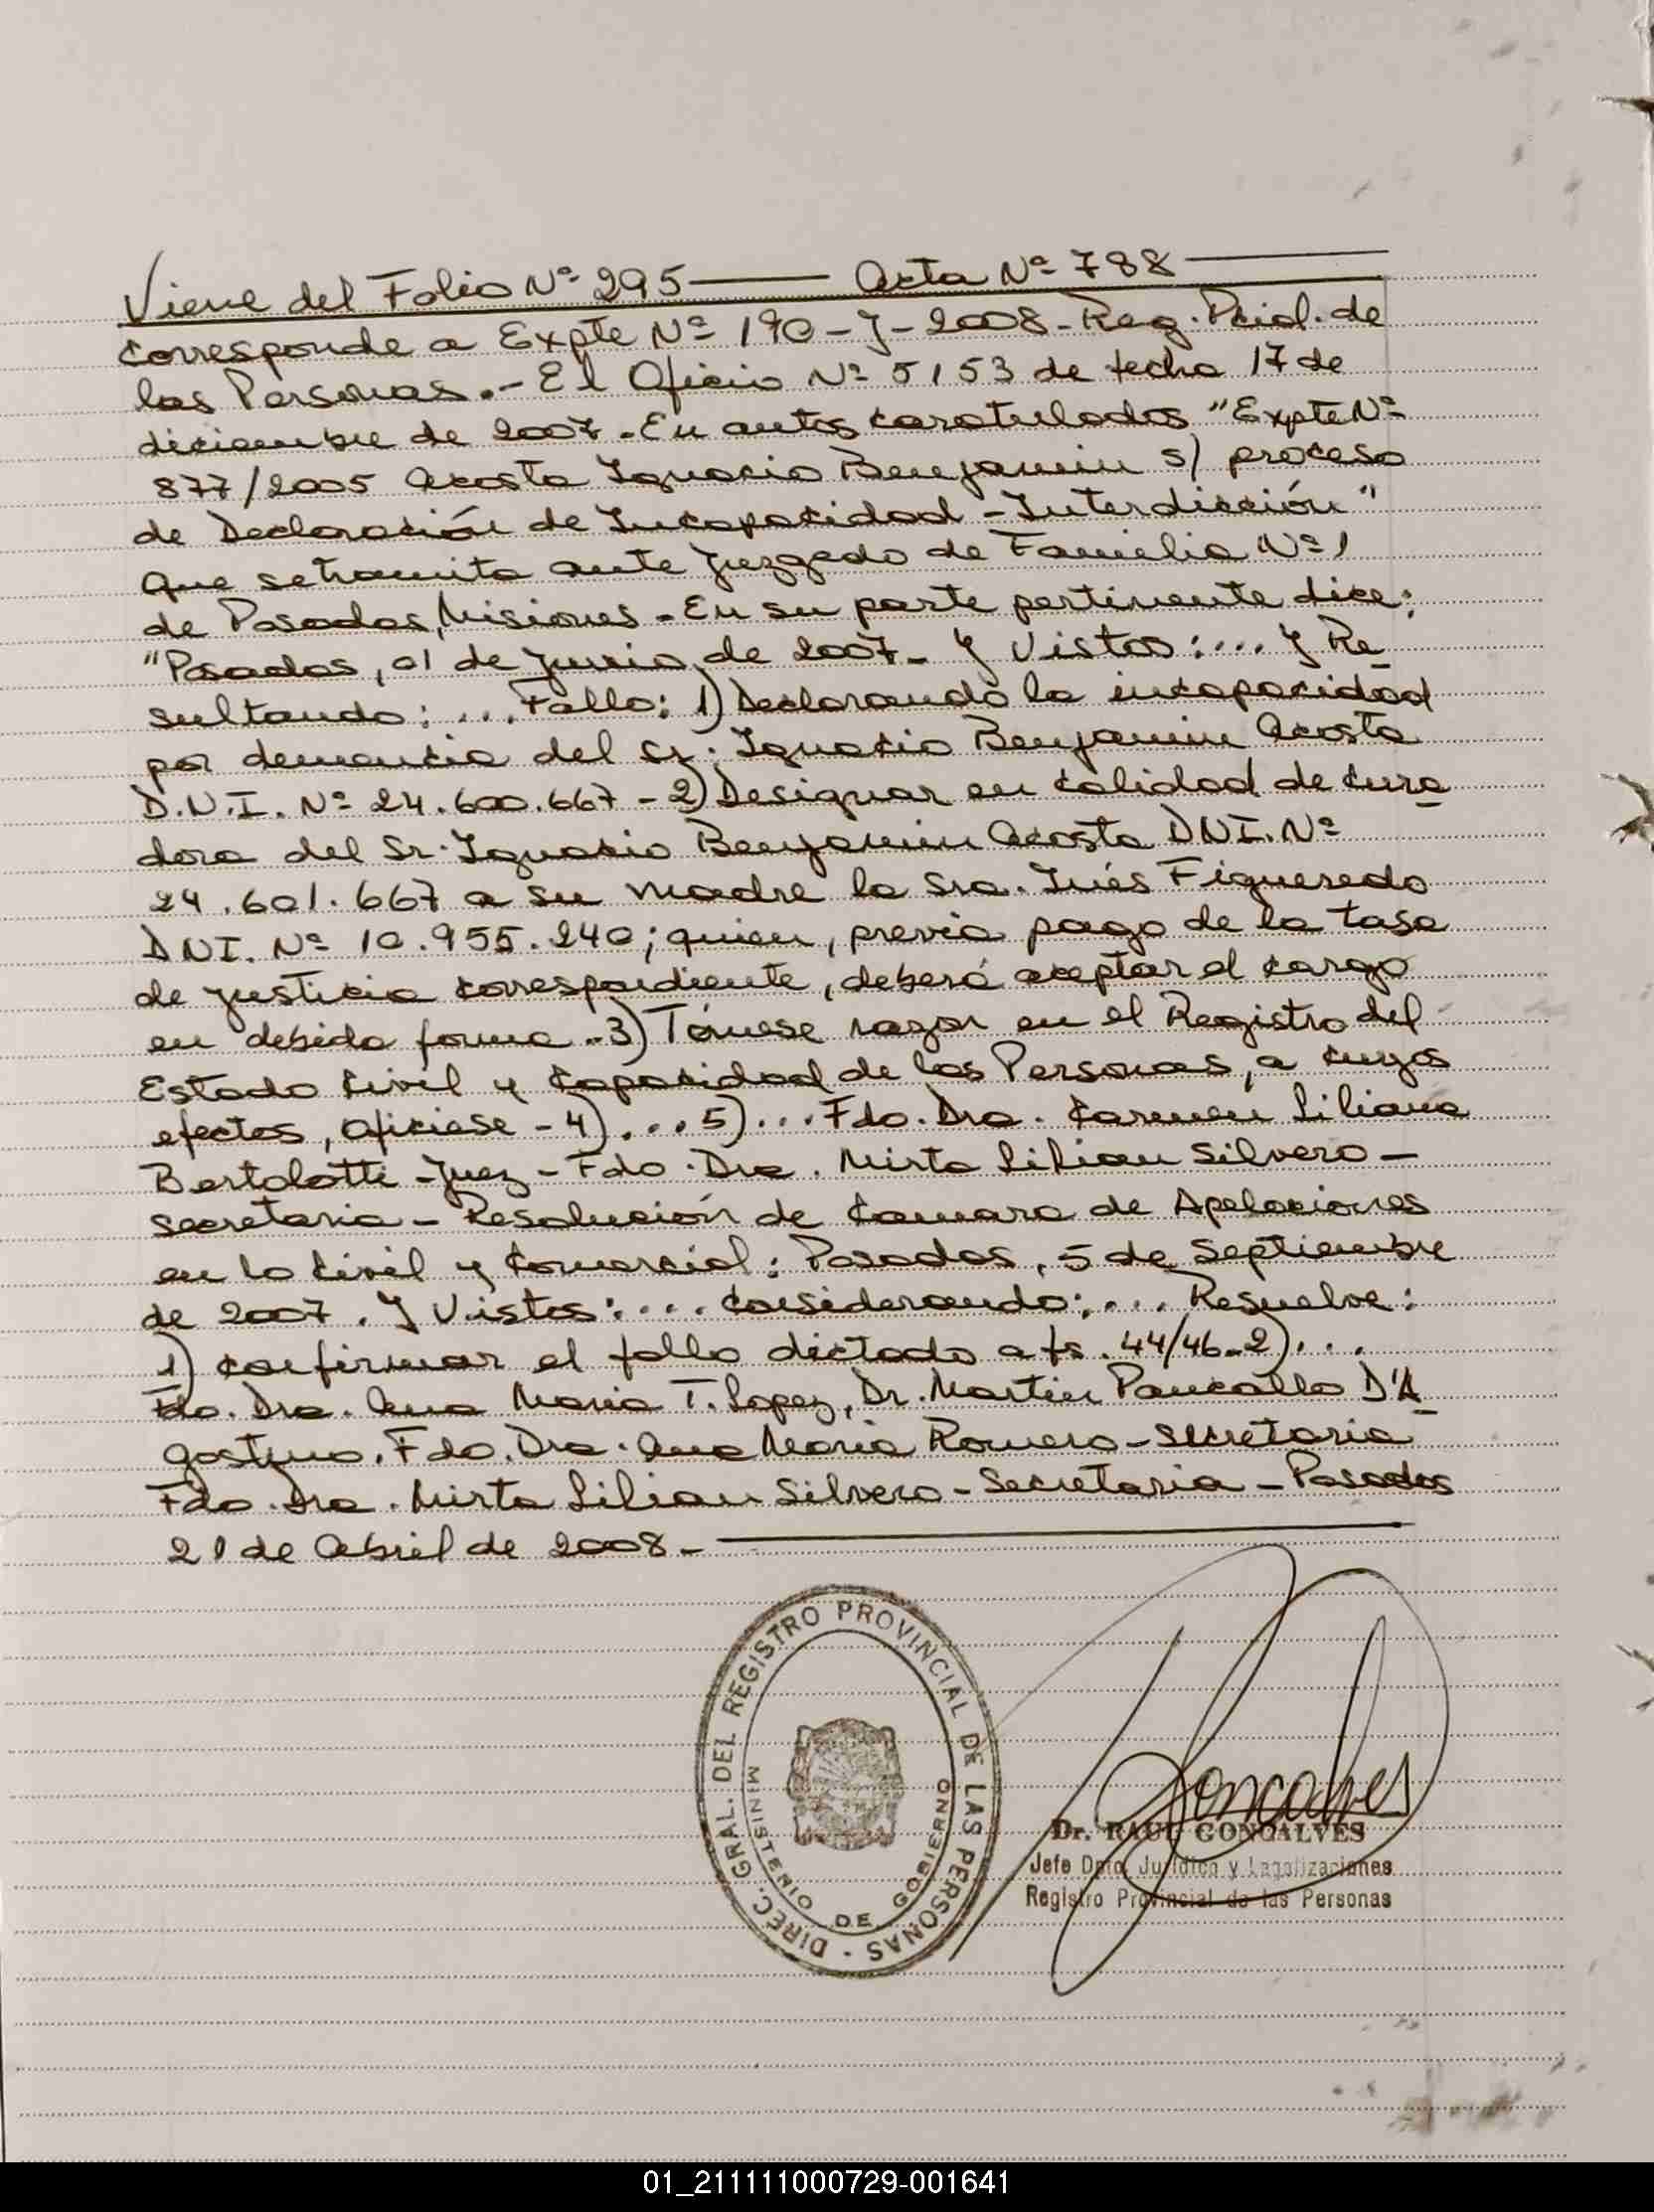 Viene del Folio Nº 295 —— Acta Nº 788 ——
Corresponde a Expte Nº 190-J-2008-Reg. Pcial. de
las Personas.- El Oficio Nº 5153 de fecha 17 de
diciembre de 2007.-En autos caratulados "Expte Nº
877/2005 Acosta Ignacio Benjamin s/ proceso
de Declaración de Incapacidad - Interdicción"
que se tramita ante Juzgado de Familia Nº 1
de Posadas, Misiones.-En su parte pertinente dice:
"Posadas, 01 de Junio de 2007.- Y Vistos:... Y Re
sultando: ... Fallo: 1) Declarando la incapacidad
por demencia del Sr. Ignacio Benjamin Acosta
D.N.I. Nº 24.600.667 - 2) Designar en calidad de cura
dora del Sr. Ignacio Benjamin Acosta DNI. Nº
24.601.667 a su madre la Sra. Inés Figueredo
DNI. Nº 10.955.240; quien, previa pago de la tasa
de justicia correspondiente, deberá aceptar el cargo
en debida forma.-3) Tómese razon en el Registro del
Estado Civil y Capacidad de las Personas, a cuyos
efectos, ofíciese - 4)... 5)... Fdo. Dra. Carmen Liliana
Bertolotti - Juez - Fdo. Dra. Mirta Lilian Silvero -
secretaria - Resolución de Camara de Apelaciones
en lo Civil y Comercial: Posadas, 5 de Septiembre
de 2007. Y Vistos:.... Considerando:... Resuelve:
1) confirmar el fallo dictado a fs. 44/46.-2)...
Fdo. Dra. Ana Maria T. Lopez, Dr. Martin D'A
gostino. Fdo. Dra. Ana Maria Romero - secretaria
Fdo. Dra. Mirta Lilian Silvero - Secretaria - Posadas
21 de Abril de 2008.- ——
DIREC. GRAL. DEL REGISTRO PROVINCIAL DE LAS PERSONAS -
MINISTERIO DE GOBIERNO
Goncalves
Dr. RAUL GONCALVES
Jefe Dpto. Jurídico y Legalizaciones
Registro Provincial de las Personas
01_211111000729-001641